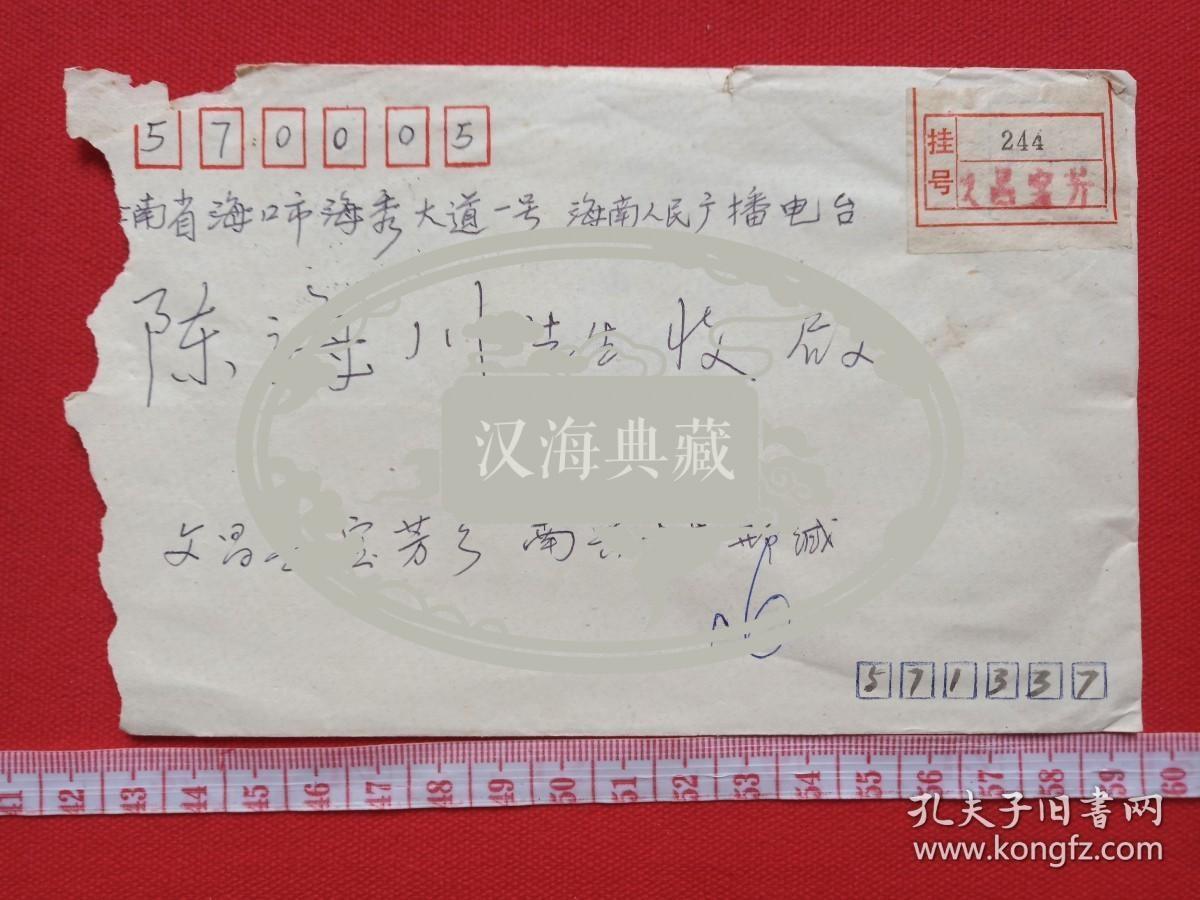 570005
挂号 244
文昌宝芳
南省海口市海秀大道一号 海南人民广播电台
陈 川 先生 收 启
汉海典藏
文昌 宝芳乡 南 邢缄
571337
41 42 43 44 45 46 47 48 49 50 51 52 53 54 55 56 57 58 59 60
孔夫子旧书网
www.kongfz.com